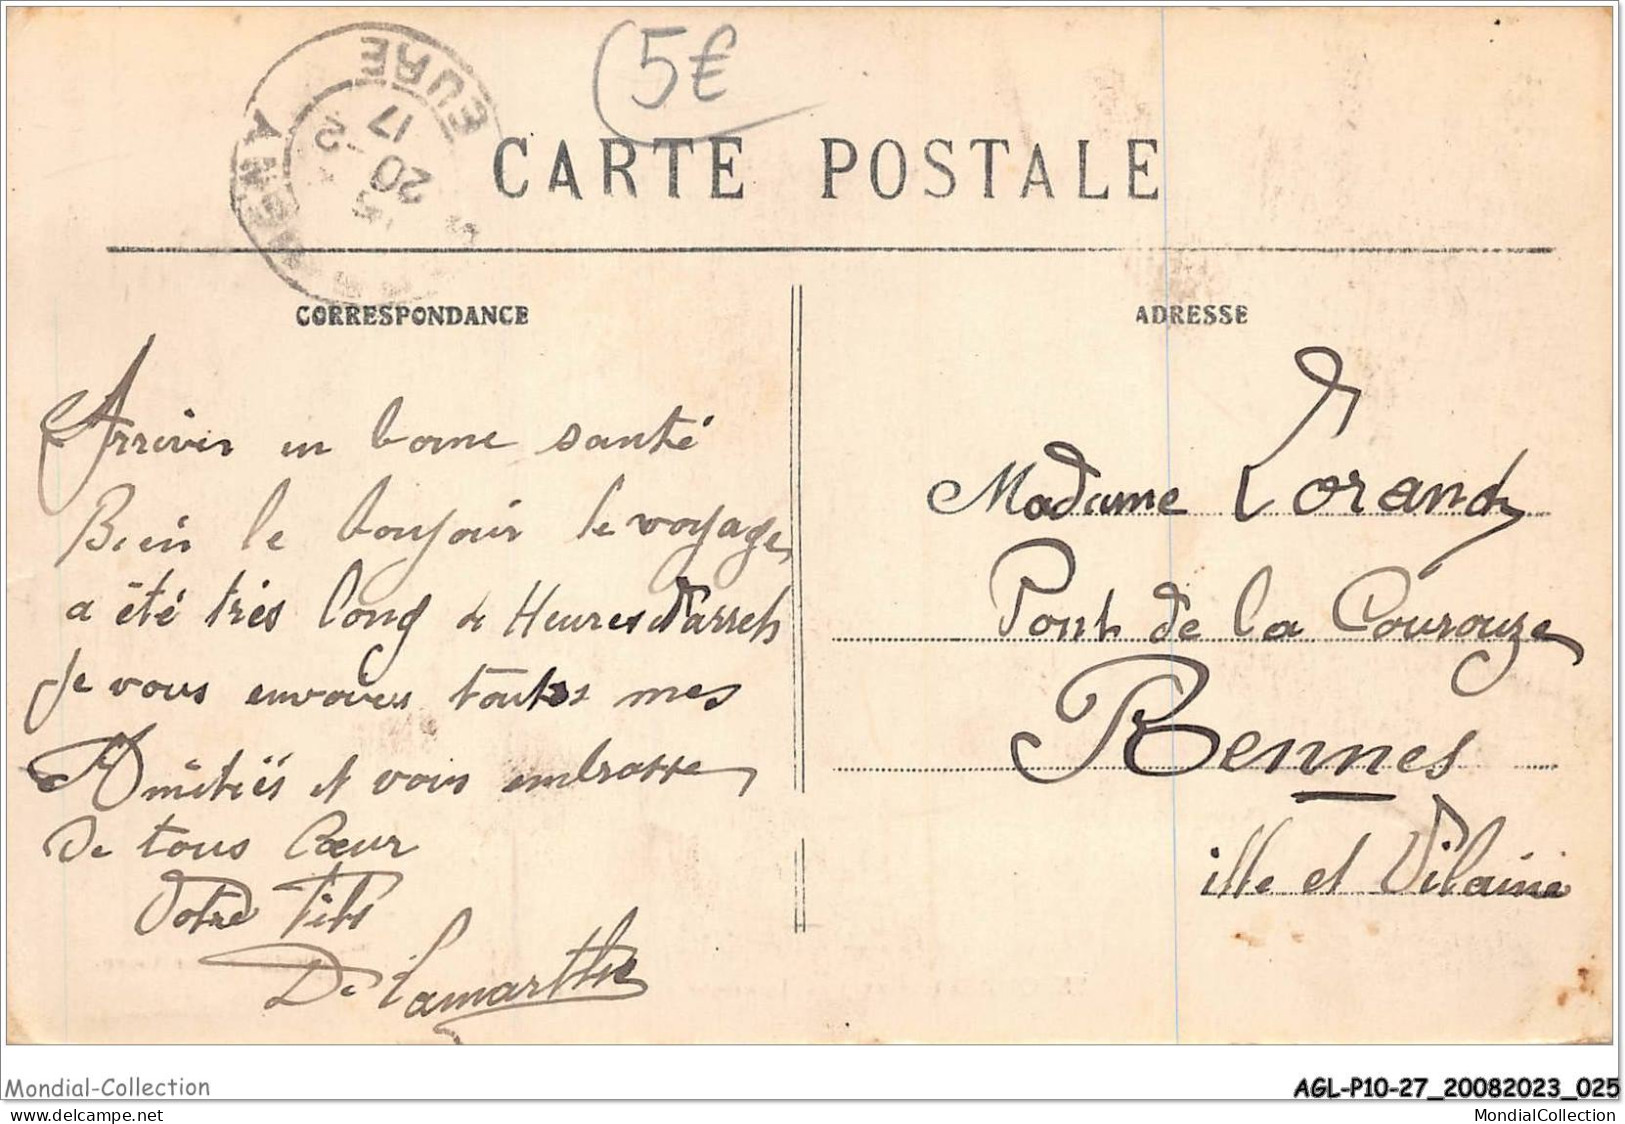 5€
EURE
17
20
CARTE POSTALE
CORRESPONDANCE
Arrivés en bonne santé
Bien le bonjour le voyage
a été très long de Heures
Je vous envoies toutes mes
Amitiés et vous embrasse
De tous Cœur
Votre fils
De Lamarthe
ADRESSE
Madame Lorand
Pont de la Courouze
Rennes
ille et Vilaine
Mondial-Collection
delcampe.net
AGL-P10-27_20082023_025
MondialCollection